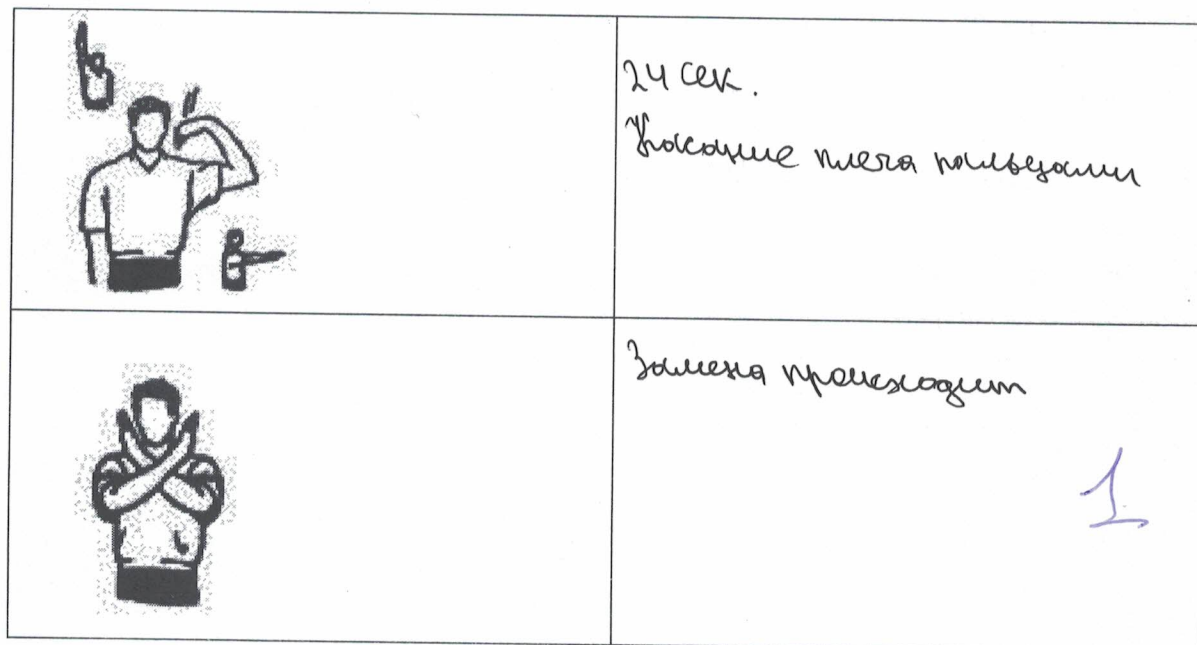 24 сек.
Касание плеча пальцами
Замена происходит
1